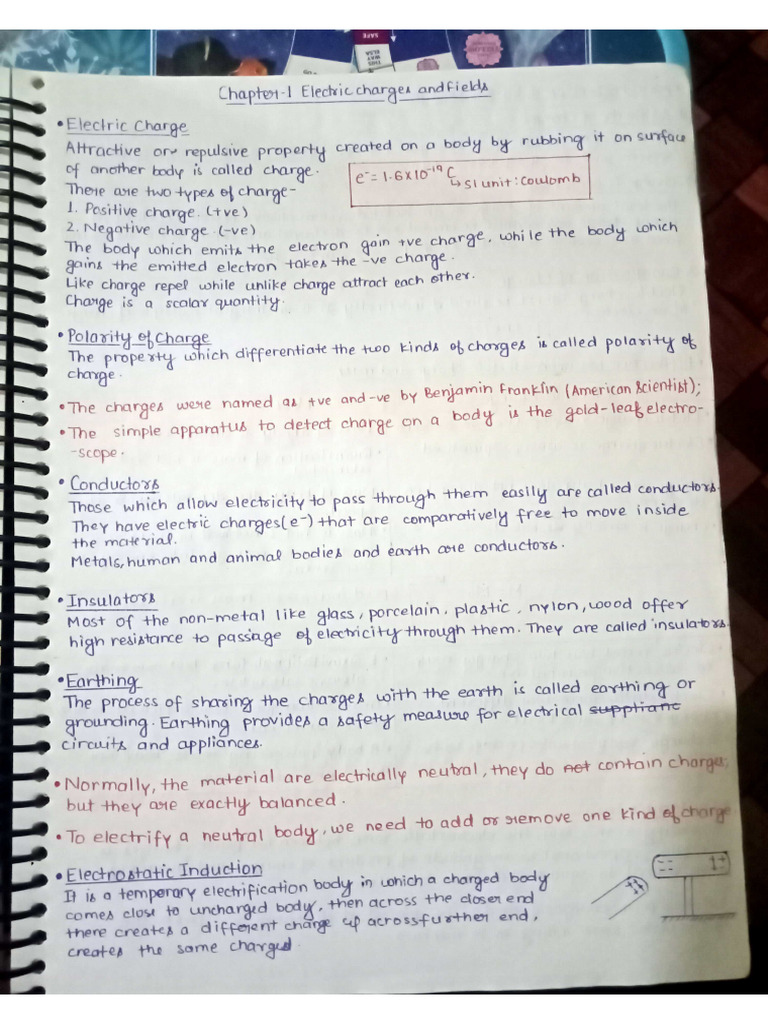 SAFE
THIS WAY ELSA
Chapter-1 Electric charges and fields
• Electric Charge
Attractive or repulsive property created on a body by rubbing it on surface
of another body is called charge.
e⁻ = 1.6×10⁻¹⁹ C
↳ SI unit : Coulomb
There are two types of charge-
1. Positive charge. (+ve)
2. Negative charge. (-ve)
The body which emits the electron gain +ve charge, while the body which
gains the emitted electron takes the -ve charge.
Like charge repel while unlike charge attract each other.
Charge is a scalar quantity.
• Polarity of Charge
The property which differentiate the two kinds of charges is called polarity of
charge.
• The charges were named as +ve and -ve by Benjamin Franklin (American Scientist);
• The simple apparatus to detect charge on a body is the gold-leaf electro-
-scope.
• Conductors
Those which allow electricity to pass through them easily are called conductors.
They have electric charges(e⁻) that are comparatively free to move inside
the material.
Metals, human and animal bodies and earth are conductors.
• Insulators
Most of the non-metal like glass, porcelain, plastic, nylon, wood offer
high resistance to passage of electricity through them. They are called insulators.
• Earthing
The process of sharing the charges with the earth is called earthing or
grounding. Earthing provides a safety measure for electrical
circuits and appliances.
• Normally, the material are electrically neutral, they do not contain charge,
but they are exactly balanced.
• To electrify a neutral body, we need to add or remove one kind of charge
• Electrostatic Induction
It is a temporary electrification body in which a charged body
comes close to uncharged body, then across the closer end
there creates a different charge across further end,
creates the same charged.